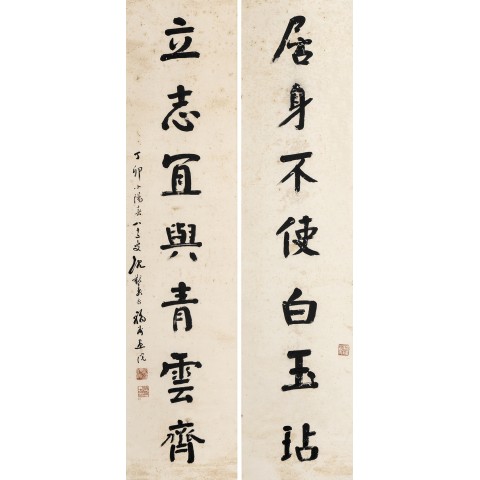 居身不使白玉玷
立志宜與青雲齊
丁卯小陽春八十叟